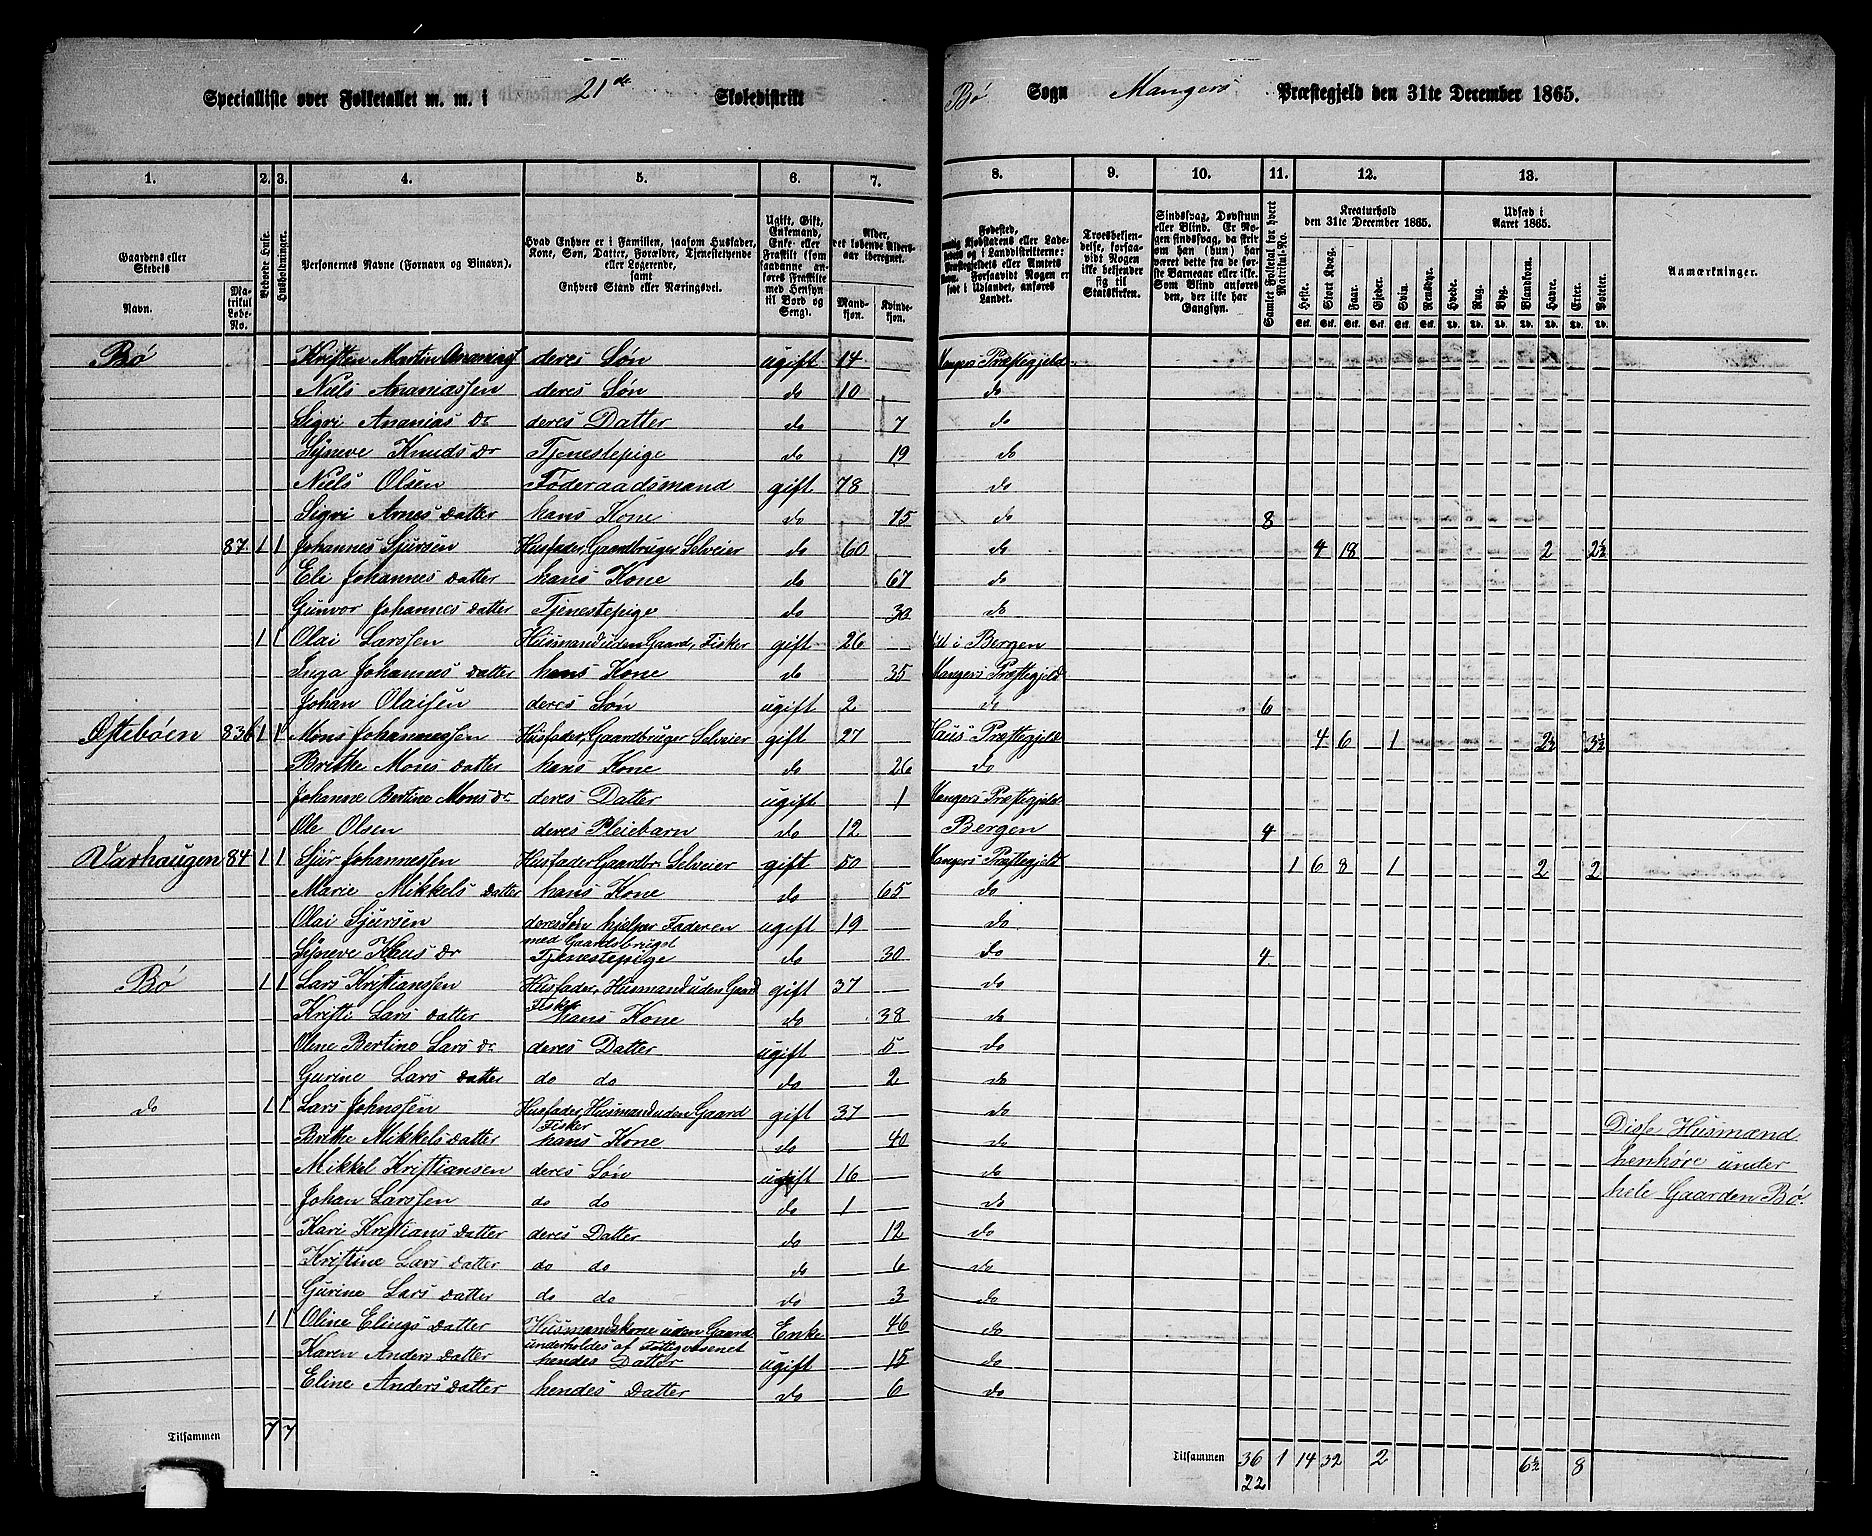 Specialliste over Folketallet m. m. i 21de Skoledistrikt Bö Sogn Mangers Præstegjeld den 31te December 1865.
1. 2. 3. 4. 5. 6. 7. 8. 9. 10. 11. 12. 13.
Gaardens eller Stedets Navn. Matrikul Løbe-No. Beboede Huse. Husholdninger. Personernes Navne (Fornavn og Binavn). Hvad Enhver er i Familien, saasom Husfader, Kone, Søn, Datter, Forældre, Tjenestetyende eller Logerende, samt Enhvers Stand eller Næringsvei. Ugift, Gift, Enkemand, Enke eller Fraskilt (som saadanne anføres Fraskilte med Hensyn til Bord og Seng). Alder, det løbende Alders-aar iberegnet. Mandkjøn. Kvindekjøn.
Troesbekjendelse, forsaavidt Nogen ikke bekjender sig til Statskirken. Samlet Folketal for hvert Matrikul-No. Kreaturhold den 31te December 1865. Heste. Stort Kvæg. Faar. Gjeder. Svin. Rensdyr. Udsæd i Aaret 1865. Hvede. Rug. Byg. Blandkorn. Havre. Erter. Poteter. Anmærkninger.
Bö Kristen Martin Ananiass deres Sön ugift 14 Mangers Præstegjeld
Niels Ananiassen deres Sön do 10 do
Sigri Ananias Dr deres Datter do 7 do
Syneve Knuds Dr Tjenestepige do 19 do
Niels Olsen Föderaadsmand gift 78 do
Sigri Arnes Datter hans Kone do 75 do 8
87. 1 1 Johannes Sjursen Husfader, Gaardbruger Selveier do 60 do 4 18 2 2½
Eli Johannes Datter hans Kone do 67 do
Gunvor Johannes Datter Tjenestepige do 30 do
1 1 Olai Larssen Husmand uden Gaard, Fisker gift 26 i Bergen
Inga Johannes Datter hans Kone do 35 Mangers Præstegjeld
Johan Olaisen deres Sön ugift 2 do 6
Östeböen 83b 1 1 Mons Johannessen Husfader, Gaardbruger Selveier gift 27 Haus Præstegjeld 4 6 1 2½ 3½
Brithe Mons Datter hans Kone do 26 do
Johanne Bertine Mons Dr deres Datter ugift 1 Mangers Præstegjeld
Ole Olsen deres Pleiebarn do 12 Bergen 4
Varhaugen 84 1 1 Sjur Johannessen Husfader Gaardbr. Selveier gift 50 Mangers Præstegjeld 1 6 8 1 2 2
Marie Mikkels Datter hans Kone do 65 do
Olai Sjursen deres Sön hjelper Faderen med Gaardsbruget ugift 19 do
Syneve Dr Tjenestepige do 30 do 4
Bö 1 1 Lars Kristianssen Husfader, Husmand uden Gaard Fisker gift 37 do
Kristi Lars Datter hans Kone do 38 do
Oline Bertine Lars Dr deres Datter ugift 5 do
Gurine Lars Datter do do do 2 do
do 1 1 Lars Johnssen Husfader, Husmand uden Gaard Fisker gift 37 do
Brithe Mikkels Datter hans Kone do 40 do Disse Husmænd
Mikkel Kristiansen deres Sön ugift 16 do henhöre under
Johan Larssen do do do 1 do hele Gaarden Bö.
Kari Kristians Datter deres Datter do 12 do
Kristine Lars Datter do do do 6 do
Gurine Lars Datter do do do 3 do
1 1 Oline Elings Datter Husmandskone uden Gaard underholdes af Fattigvæsenet Enke 46 do
Karen Anders Datter hendes Datter ugift 15 do
Eline Anders Datter hendes Datter do 6 do
Tilsammen 7 7 Tilsammen 36 1 14 32 2 6½ 8
22